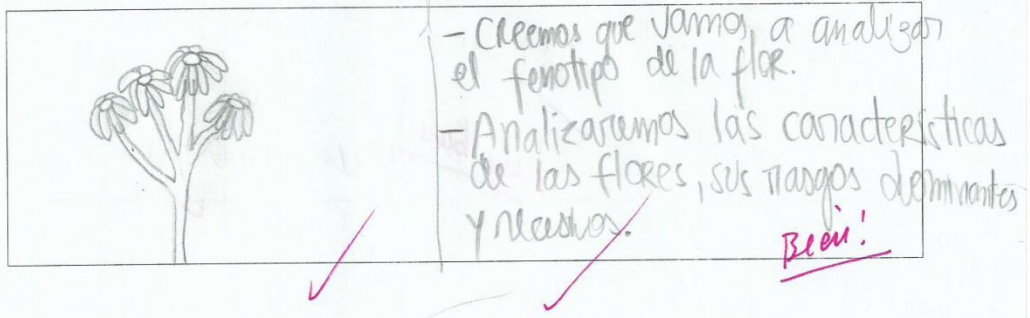 - Creemos que vamos a analizar
el fenotipo de la flor.
- Analizaremos las características
de las flores, sus rasgos dominantes
y recesivos.
Bien!